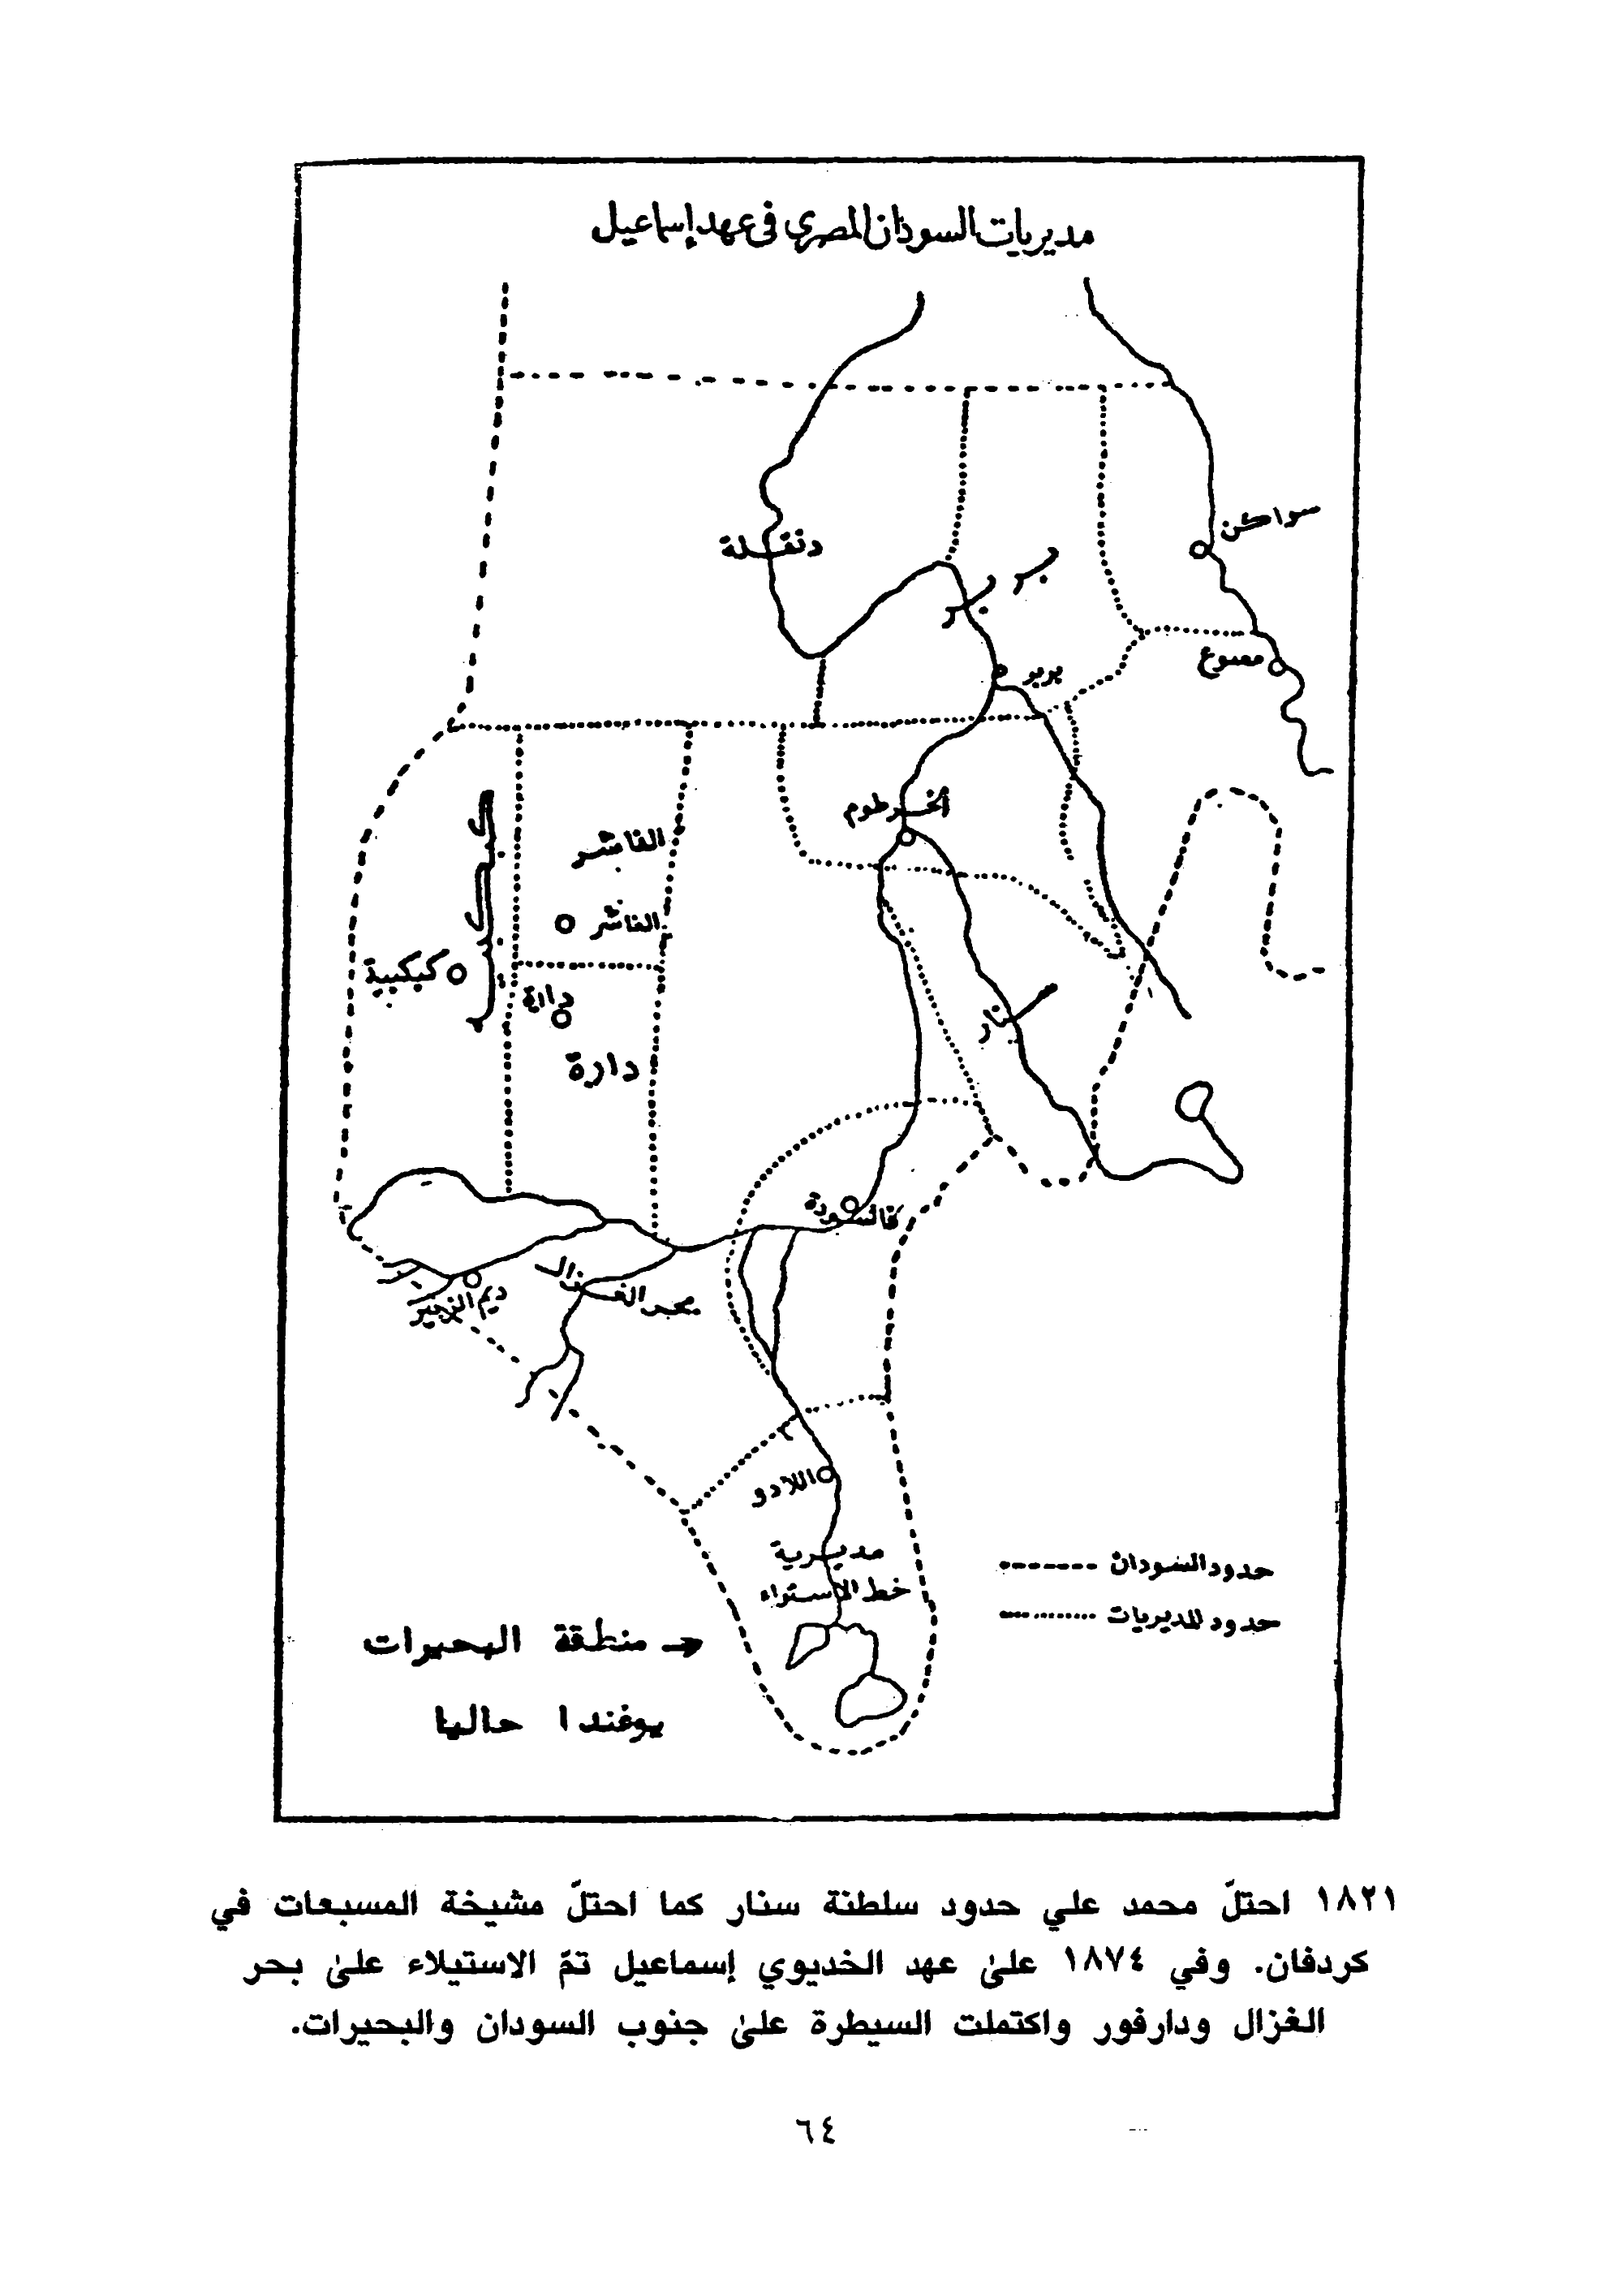 مديريات السودان المصري في عهد إسماعيل
سواكن
دنقلة
بربر
بربر
مصوع
الخرطوم
الفاشر
الفاشر
كبكبية
دارة
دارة
سنار
فاشودة
بحر الغزال
ديم الزبير
اللادو
مديرية
خط الاستواء
حدود السودان
حدود المديريات
منطقة البحيرات
يوغندا حاليا
١٨٢١ احتلّ محمد علي حدود سلطنة سنار كما احتلّ مشيخة المسبعات في
كردفان. وفي ١٨٧٤ علىٰ عهد الخديوي إسماعيل تمّ الاستيلاء علىٰ بحر
الغزال ودارفور واكتملت السيطرة علىٰ جنوب السودان والبحيرات.
٦٤